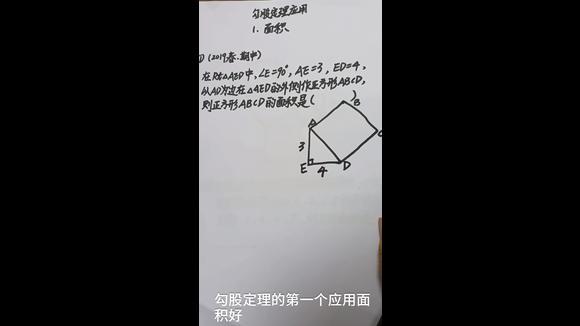 勾股定理应用
1、面积
① (2019春·期中)
在Rt△AED中,∠E=90°, AE=3, ED=4,
以AD为边在△AED的外侧作正方形ABCD,
则正方形ABCD的面积是( )
B
A
C
3
E
4
D
勾股定理的第一个应用面
积好